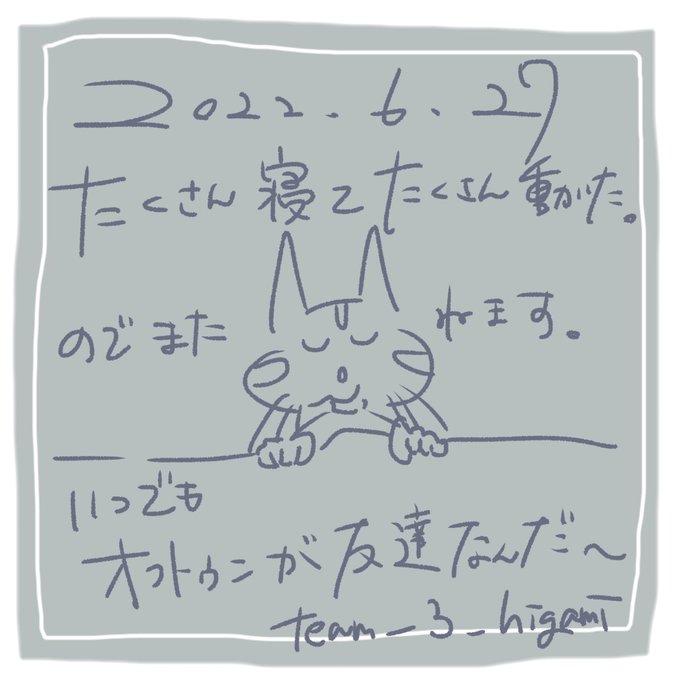 2022.6.27
たくさん寝てたくさん動いた。
のでまた ねます。
いつでも
オフトゥンが友達なんだ〜
team_3_higami